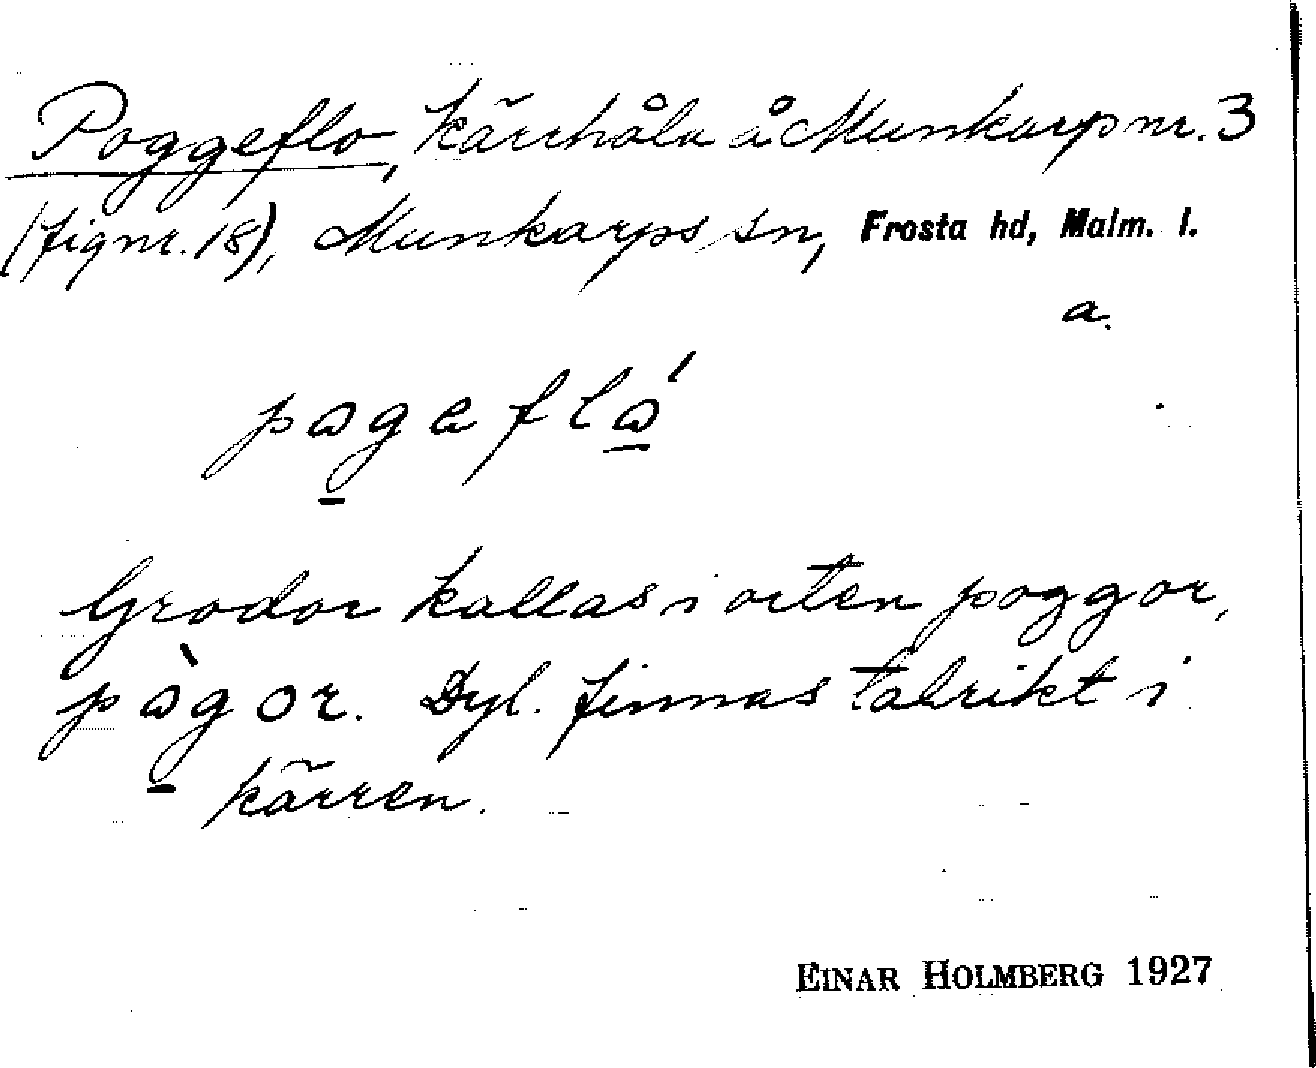 Poggeflo, kärrhåla å Munkarp nr. 3
(fig nr. 18), Munkarps sn, Frosta hd, Malm. l.
a.
pågeflǻ
Grodor kallas i orten poggor,
på̀gor. Dyl. finnas talrikt i
kärren.
EINAR HOLMBERG 1927